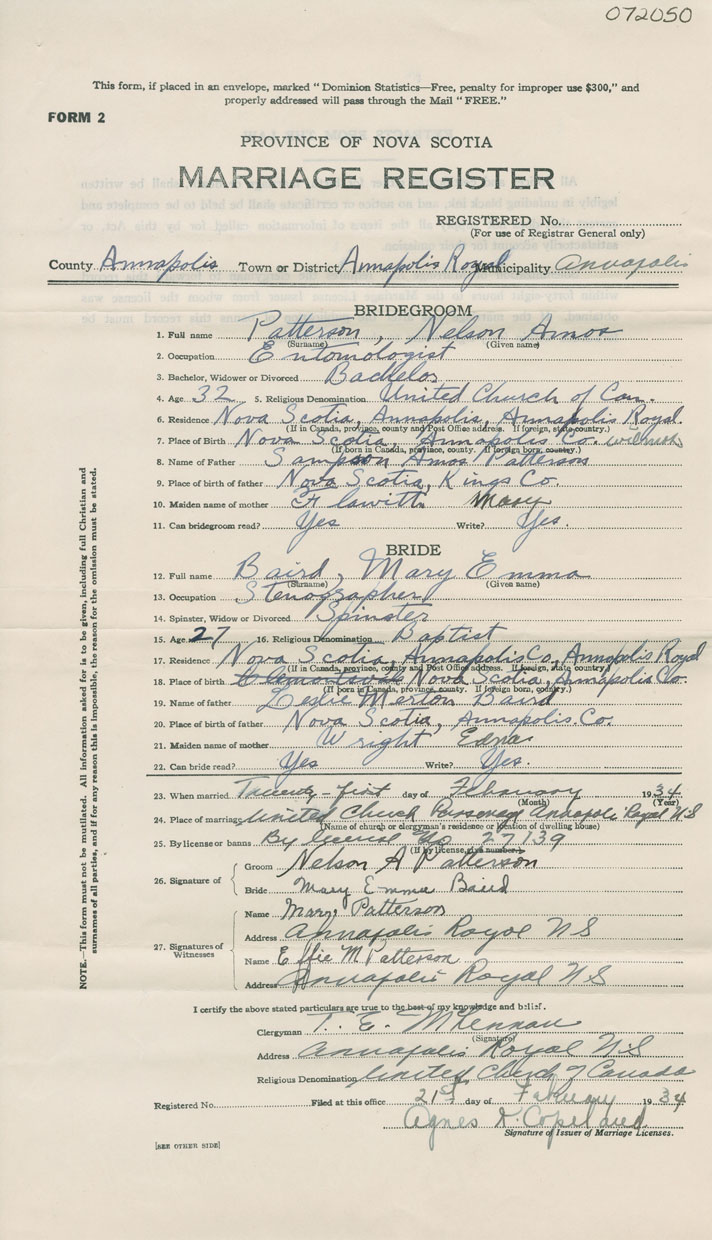 072050
This form, if placed in an envelope, marked "Dominion Statistics—Free, penalty for improper use $300," and
properly addressed will pass through the Mail "FREE."
FORM 2
PROVINCE OF NOVA SCOTIA
MARRIAGE REGISTER
REGISTERED No.
(For use of Registrar General only)
County Annapolis Town or District Annapolis Royal Municipality Annapolis
BRIDEGROOM
1. Full name Patterson, Nelson Amos
(Surname) (Given name)
2. Occupation Entomologist
3. Bachelor, Widower or Divorced Bachelor
4. Age 32 5. Religious Denomination United Church of Can.
6. Residence Nova Scotia, Annapolis, Annapolis Royal.
(If in Canada, province, county and Post Office address. If foreign, state country.)
7. Place of Birth Nova Scotia, Annapolis Co.
(If born in Canada, province, county. If foreign born, country.)
8. Name of Father Sampson Amos Patterson
9. Place of birth of father Nova Scotia, Kings Co.
10. Maiden name of mother Mary
11. Can bridegroom read? Yes Write? Yes.
BRIDE
12. Full name Baird, Mary Emma
(Surname) (Given name)
13. Occupation Stenographer
14. Spinster, Widow or Divorced Spinster
15. Age 27 16. Religious Denomination Baptist
17. Residence Nova Scotia, Annapolis Co., Annapolis Royal
(If in Canada, province, county and Post Office address. If foreign, state country.)
18. Place of birth Clementsvale Nova Scotia, Annapolis Co.
(If born in Canada, province, county. If foreign born, country.)
19. Name of father Leslie Merton Baird
20. Place of birth of father Nova Scotia, Annapolis. Co.
21. Maiden name of mother Wright Edna
22. Can bride read? Yes Write? Yes.
23. When married Twenty-first day of February 1934
(Month) (Year)
24. Place of marriage United Church Parsonage Annapolis Royal N S
(Name of church or clergyman's residence or location of dwelling house)
25. By license or banns By license No 27139
(If by license, give number.)
26. Signature of
Groom Nelson A Patterson
Bride Mary Emma Baird
27. Signatures of Witnesses
Name Mary Patterson
Address Annapolis Royal N S
Name Effie M Patterson
Address Annapolis Royal N S
I certify the above stated particulars are true to the best of my knowledge and belief.
Clergyman T. E.
(Signature)
Address Annapolis Royal N.S
Religious Denomination United Church of Canada
Registered No. Filed at this office 21st day of February 1934
Agnes Copeland
Signature of Issuer of Marriage Licenses.
[SEE OTHER SIDE]
NOTE.—This form must not be mutilated. All information asked for is to be given, including full Christian and
surnames of all parties, and if for any reason this is impossible, the reason for the omission must be stated.